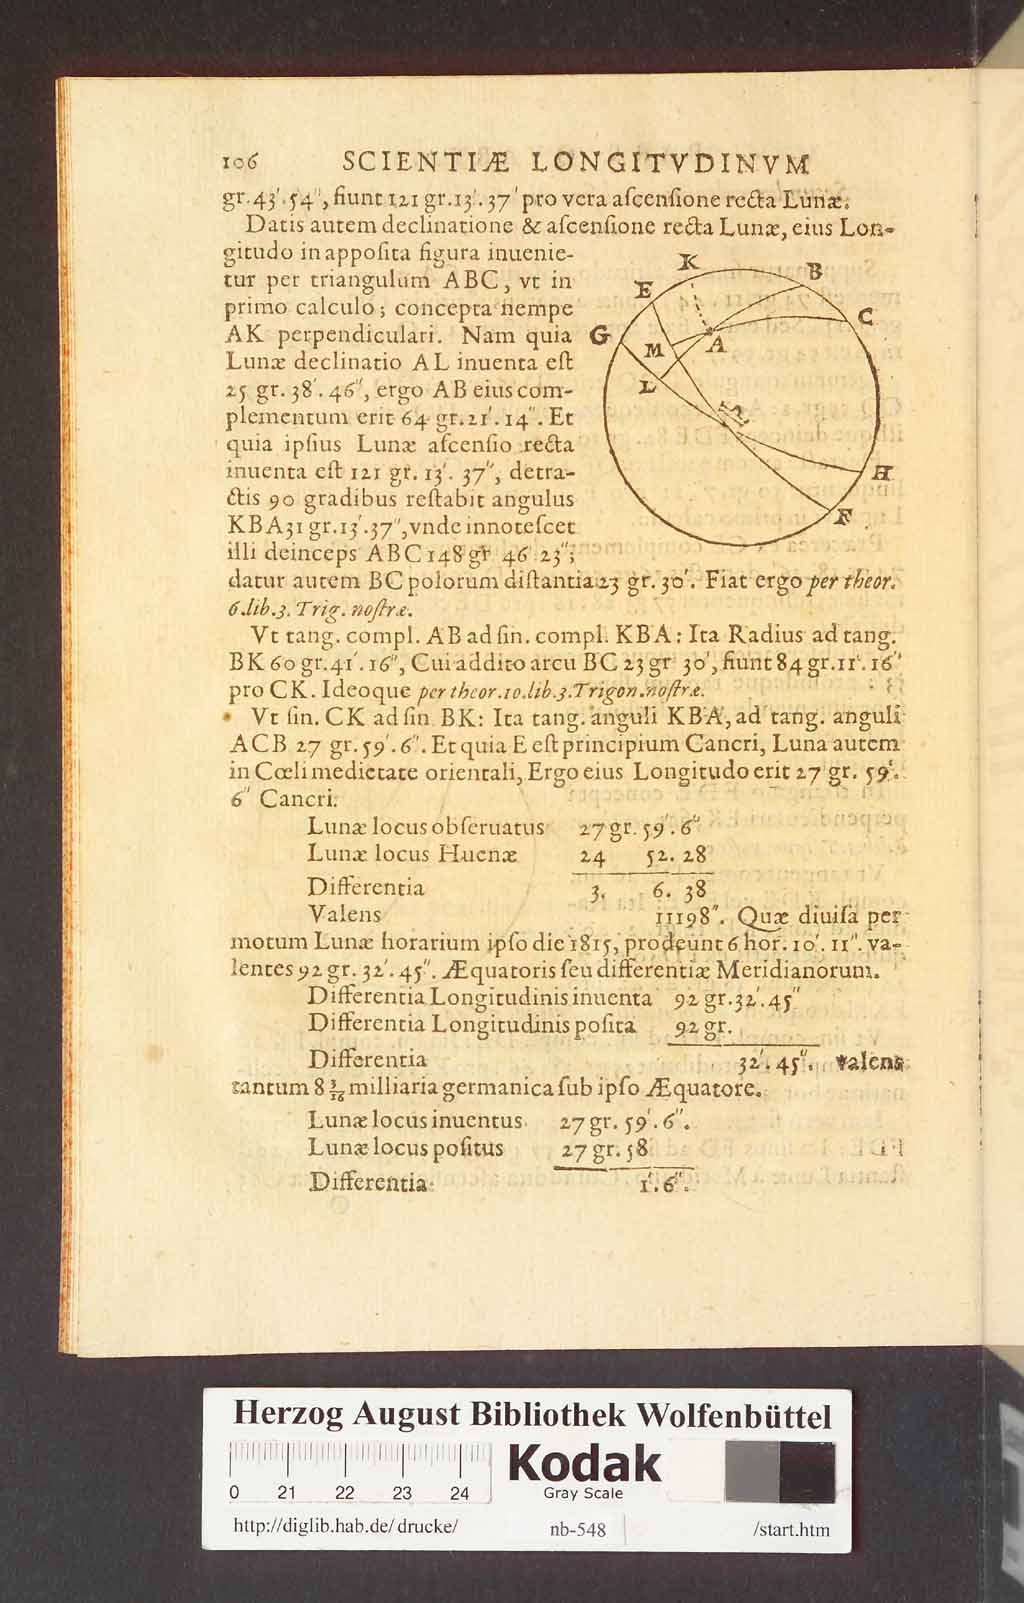 106 SCIENTIÆ LONGITVDINVM
gr. 43'. 54'', fiunt 121 gr. 13'. 37' pro vera aſcenſione recta Lunæ.
Datis autem declinatione & aſcenſione recta Lunæ, eius Lon-
gitudo in appoſita figura inuenie-
tur per triangulum ABC, vt in
primo calculo; concepta nempe
AK perpendiculari. Nam quia
Lunæ declinatio AL inuenta eſt
25 gr. 38'. 46'', ergo AB eius com-
plementum erit 64 gr. 21'. 14''. Et
quia ipſius Lunæ aſcenſio recta
inuenta eſt 121 gr. 13'. 37'', detra-
ctis 90 gradibus reſtabit angulus
KBA 31 gr. 13'. 37'', vnde innoteſcet
illi deinceps ABC 148 gr 46' 23'';
K
B
E
C
G
M
A
L
H
F
datur autem BC polorum diſtantia 23 gr. 30'. Fiat ergo per theor.
6. lib. 3. Trig. noſtræ.
Vt tang. compl. AB ad ſin. compl. KBA: Ita Radius ad tang.
BK 60 gr. 41'. 16'', Cui addito arcu BC 23 gr 30', fiunt 84 gr. 11'. 16''
pro CK. Ideoque per theor. 10. lib. 3. Trigon. noſtræ.
Vt ſin. CK ad ſin BK: Ita tang. anguli KBA, ad tang. anguli
ACB 27 gr. 59'. 6''. Et quia E eſt principium Cancri, Luna autem
in Cœli medietate orientali, Ergo eius Longitudo erit 27 gr. 59'.
6'' Cancri.
Lunæ locus obſeruatus 27 gr. 59'. 6''
Lunæ locus Huenæ 24 52. 28
Differentia 3. 6. 38
Valens 11198''. Quæ diuiſa per
motum Lunæ horarium ipſo die 1815, prodeunt 6 hor. 10'. 11''. va-
lentes 92 gr. 32'. 45''. Æquatoris ſeu differentiæ Meridianorum.
Differentia Longitudinis inuenta 92 gr. 32'. 45''
Differentia Longitudinis poſita 92 gr.
Differentia 32'. 45''. valens
tantum 8 3/16 milliaria germanica ſub ipſo Æquatore.
Lunæ locus inuentus 27 gr. 59'. 6''.
Lunæ locus poſitus 27 gr. 58
Differentia 1'. 6''.
Herzog August Bibliothek Wolfenbüttel
0 21 22 23 24
Kodak
Gray Scale
http://diglib.hab.de/drucke/ nb-548 /start.htm